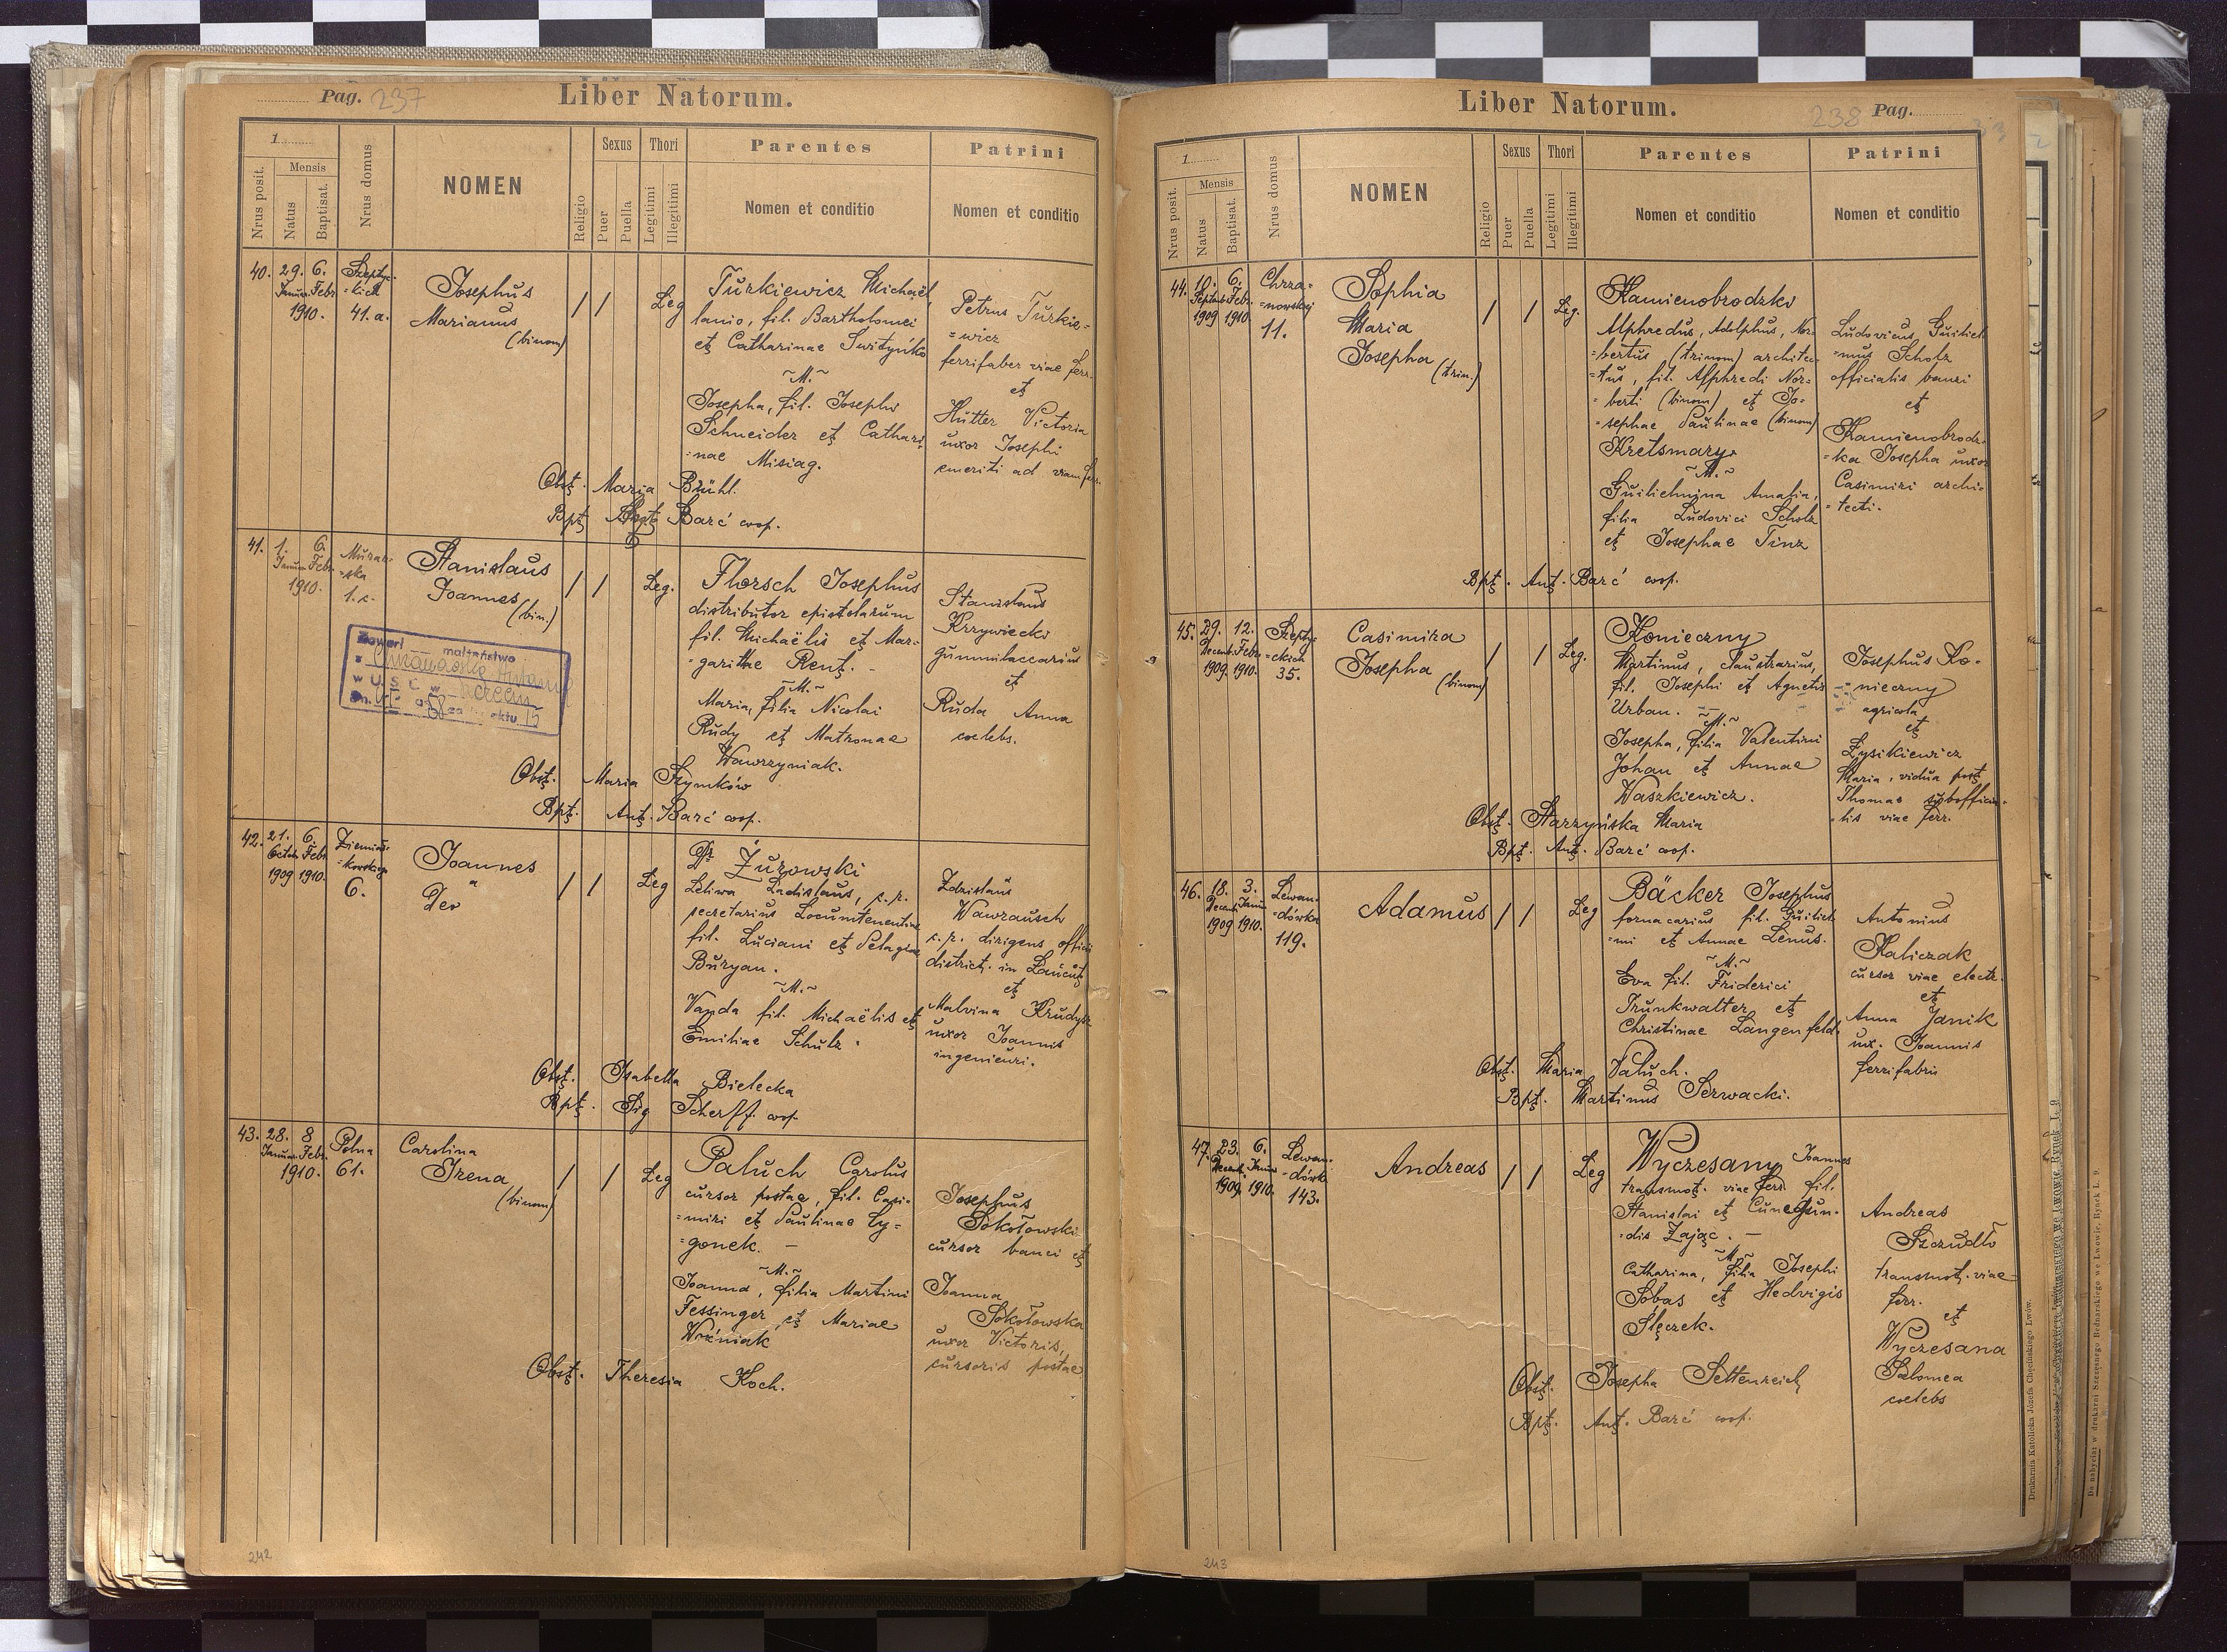 Pag. 237
Liber Natorum.
1
Nrus posit.
Mensis
Natus
Baptisat.
Nrus domus
NOMEN
Religio
Sexus
Puer
Puella
Thori
Legitimi
Illegitimi
Parentes
Nomen et conditio
Patrini
Nomen et conditio
40.
29. 6.
Januar. Febr.
1910.
Szepty-
=kich
41. a.
Josephus
Marianus
(binom)
Leg
Turkiewicz Michaël
lanio, fil. Bartholomei
et Catharinae Switynko
~M.~
Josepha, fil. Josephi
Schneider et Cathari
=nae Misiag.
Petrus Turkie=
=wicz
ferrifaber viae ferr.
et
Hutter Victoria
uxor Josephi
emeriti ad viam ferr.
Obst. Maria Brühl.
Bpt. Barć coop.
41.
1. 6.
Januar. Febr.
1910.
Murar-
=ska
1. c.
Stanislaus
Joannes
(bin.)
Leg.
Florsch Josephus
distributor epistolarum
fil. Michaëlis et Mar-
=garithae Rent. -
~M.~
Maria, filia Nicolai
Rudy et Matronae
Wawrzyniak.
Stanislaus
Krzywiecki
gummilaccarius
et
Ruda Anna
coelebs.
Zawarł małżeństwo
w U.S.C. w
Obst. Maria Szymków
Bpt. Ant. Barć coop.
42.
21. 6.
Octobr. Febr.
1909 1910.
Ziemiał-
=kowskiego
6.
Joannes
a
Deo
Leg
Dr Żurowski
Leliwa Ladislaus, c.r.
secretarius Locumtenentiae
fil. Luciani et Pelagiae
Buryan.
~M.~
Vanda fil. Michaëlis et
Emiliae Schulz.
Zdzislaus
Wawrausch
c.r. dirigens officii
district. in Łańcut
et
Malvina Krudysz
uxor Joannis
ingenieuri.
Obst. Isabella Bielecka
Bpt. Sig Scherff. coop.
43.
28. 8
Januar. Febr.
1910.
Polna
61.
Carolina
Irena
(binom)
Leg
Paluch Carolus
cursor postae, fil. Casi-
=miri et Paulinae Cy=
=gonek. -
~M.~
Joanna, filia Martini
Fessinger et Mariae
Woźniak
Josephus
Sokołowski
cursor banci et
Joanna
Sokołowska
uxor Victoris,
cursoris postae
Obst. Theresia Koch.
242
Liber Natorum.
238 Pag.
1
Nrus posit.
Mensis
Natus
Baptisat.
Nrus domus
NOMEN
Religio
Sexus
Puer
Puella
Thori
Legitimi
Illegitimi
Parentes
Nomen et conditio
Patrini
Nomen et conditio
44.
10. 6.
Septbr. Febr.
1909 1910
Chrza-
=nowskiej
11.
Sophia
Maria
Josepha (trin.)
Leg.
Kamienobrodzki
Alphredus, Adolphus, Nor-
=bertus (trinom) architec-
=tus, fil. Alphredi Nor=
=berti (binom) et Jo=
=sephae Paulinae (binom)
Kretsmary.
~M.~
Guilielmina Amalia,
filia Ludovici Scholz
et Josephae Tinz
Ludovicus Guiliel
=mus Scholz
officialis banci
et
Kamienobrodz-
=ka Josepha uxor
Casimiri archi=
=tecti.
Bpt. Ant. Barć coop.
45.
29. 12.
Decemb. Febr.
1909. 1910.
Szepty-
=ckich
35.
Casimira
Josepha
(binom)
Leg.
Konieczny
Martinus, claustrarius,
fil. Josephi et Agnetis
Urban. -
~M.~
Josepha, filia Valentini
Johan et Annae
Waszkiewicz.
Josephus Ko-
=nieczny
agricola
et
Łysikiewicz
Maria, vidua post
Thomae subofficia-
=lis viae ferr.
Obst. Starzyńska Maria
Bpt. Ant. Barć coop.
46.
18. 3.
Decemb. Januar
1909 1910.
Lewan-
=dówka
119.
Adamus
Leg
Bäcker Josephus
fornacarius fil. Guiliel
=mi et Annae Lenus.
~M.~
Eva fil. Friderici
Trunkwalter et
Christinae Langenfeld.
Antonius
Kaliczak
cursor viae electr.
et
Anna Janik
ux. Joannis
ferrifabri
Obst. Maria Valuch.
Bpt. Martinus Serwacki.
47.
23. 6.
Decemb. Januar
1909. 1910.
Lewan-
=dówka
143.
Andreas
Leg
Wyczesany Joannes
transmot. viae ferr. fil.
Stanislai et Cunegun-
=dis Zając. -
~M.~
Catharina, filia Josephi
Sobas et Hedvigis
Ślęczek.
Andreas
Szczudło
transmot. viae
ferr.
et
Wyczesana
Salomea
coelebs
Obst. Josepha Settenreich
Bpt. Ant. Barć coop.
243
Drukarnia Katolicka Józefa Chęcińskiego Lwów.
De nabycia: w drukarni Szczęsnego Bednarskiego we Lwowie, Rynek L. 9.